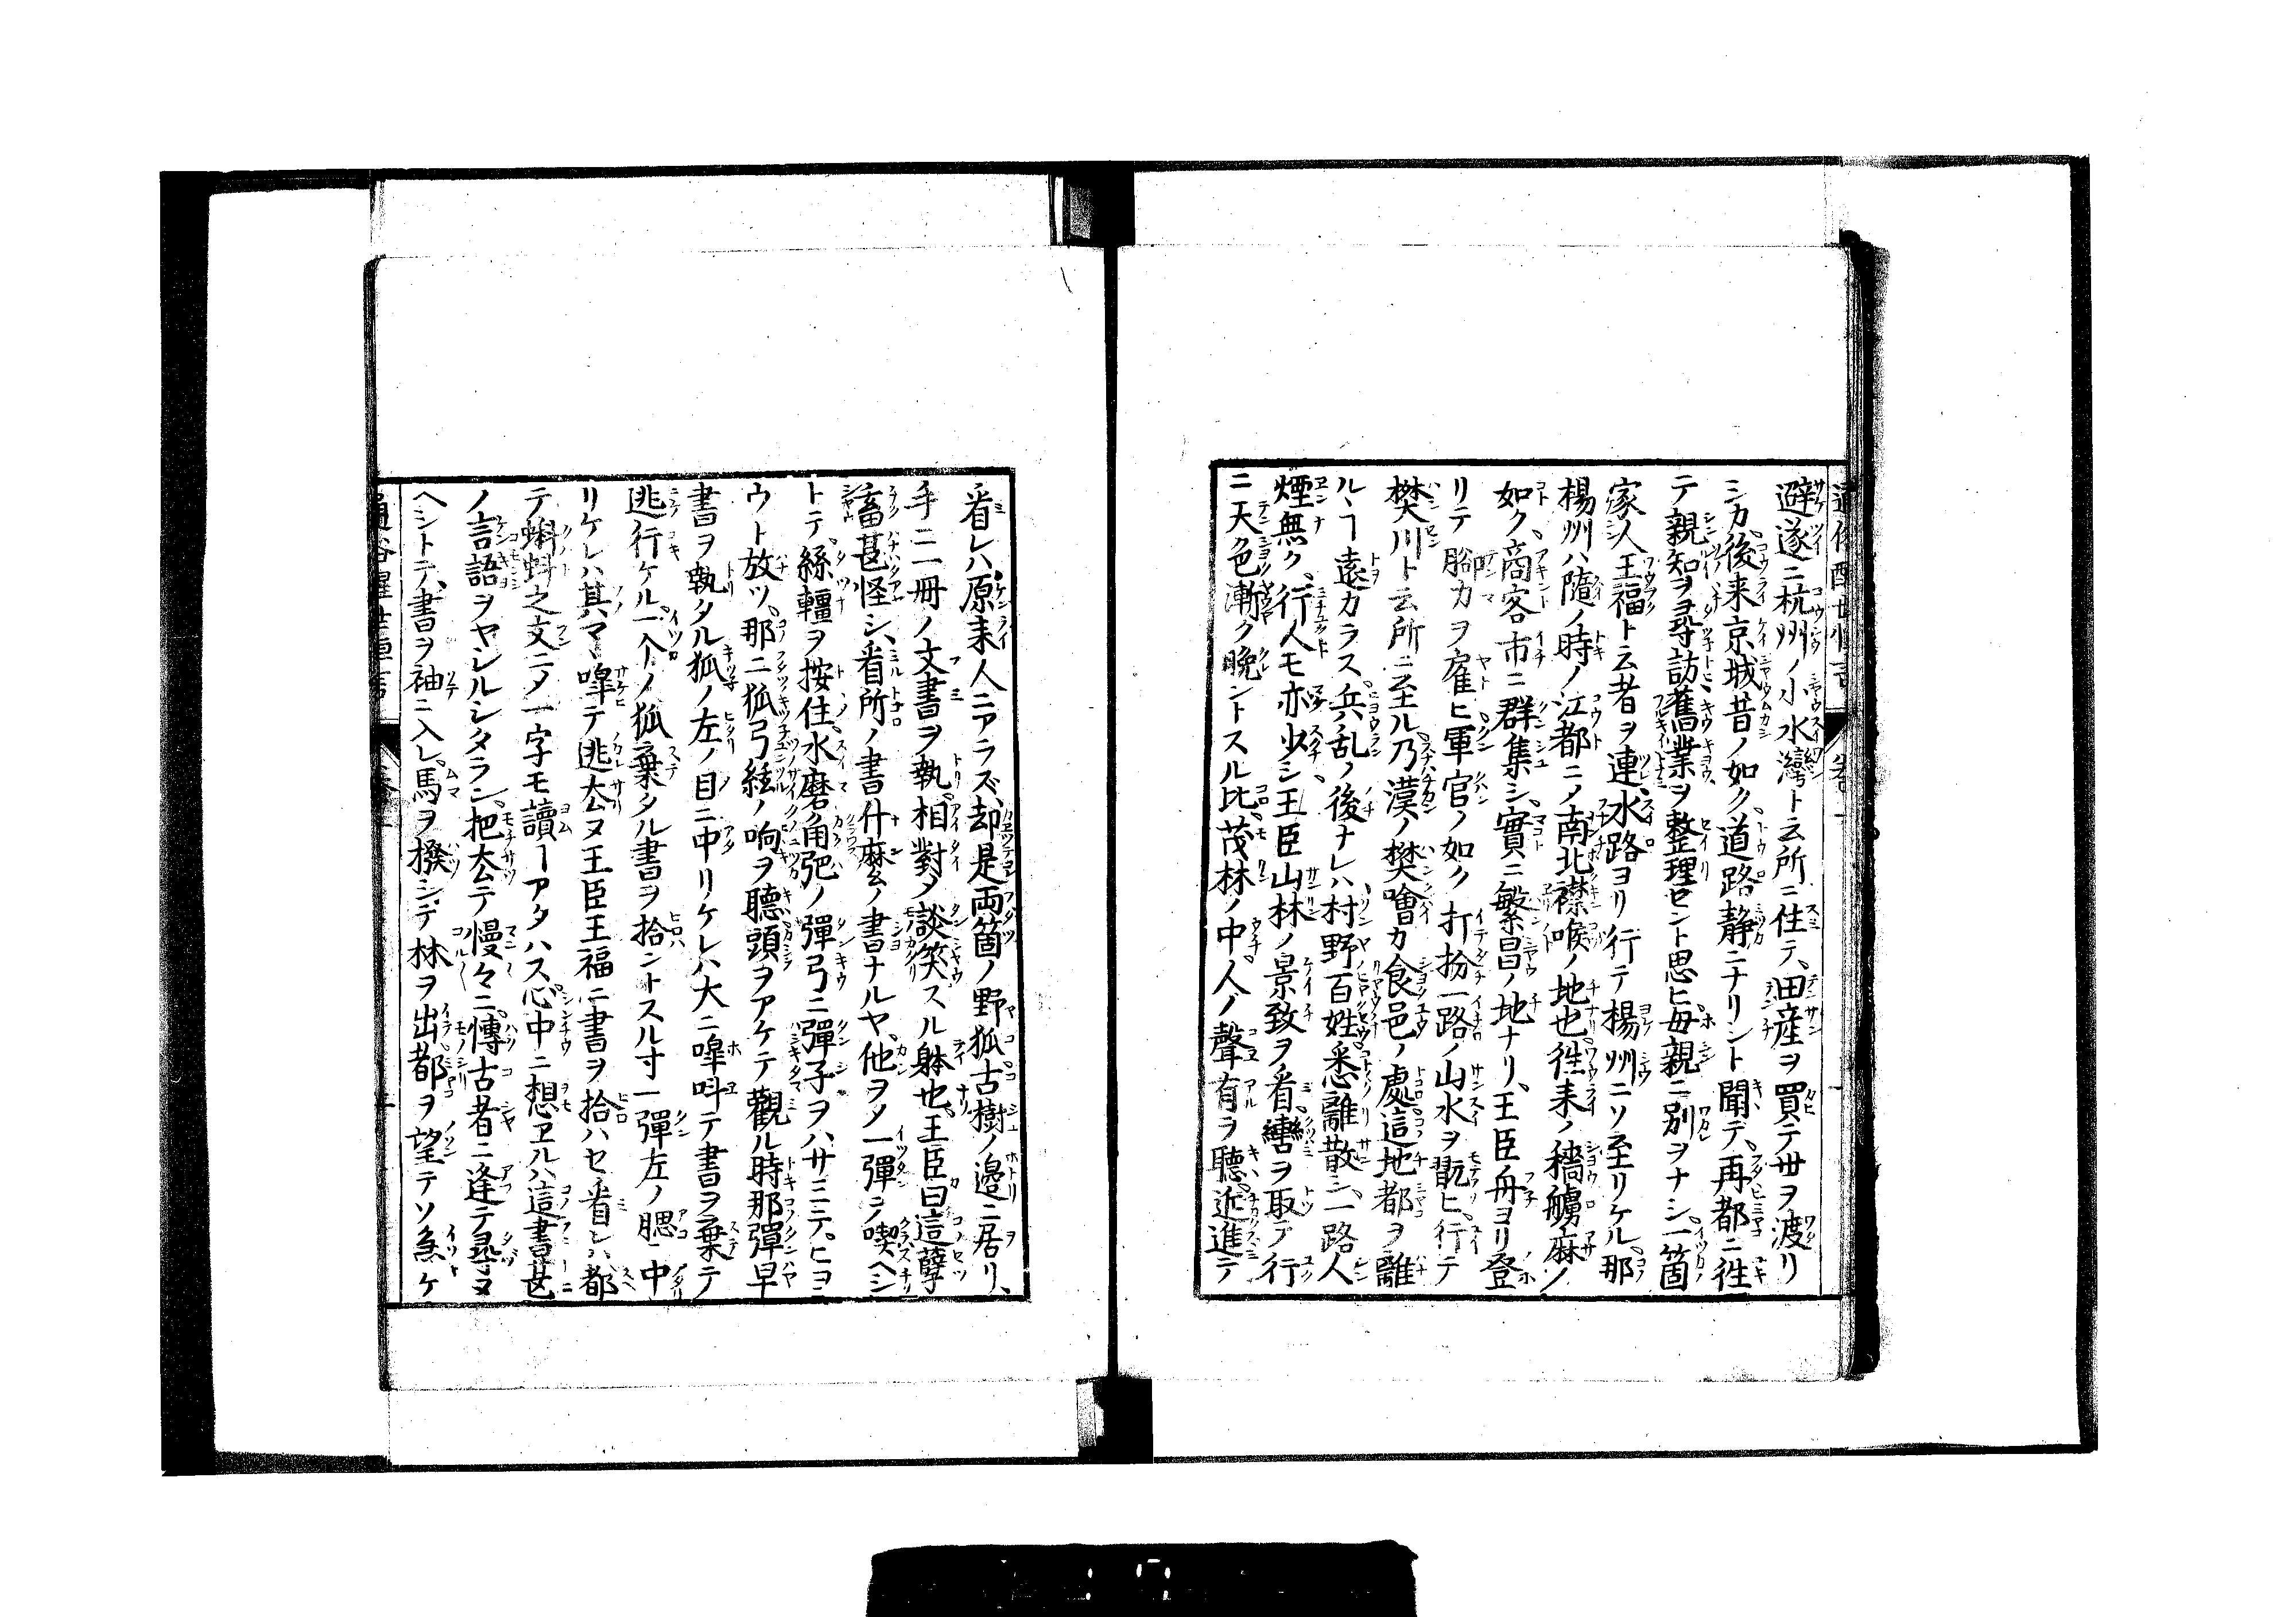 避遂ニ杭州ノ小水灣ト云所ニ住テ、田産ヲ買テ世ヲ渡リ
シカ、後来京城昔ノ如ク、道路静ニナリント聞テ、再都ニ往
テ親知ヲ尋訪舊業ヲ整理セント思ヒ毎親ニ別ヲナシ、一箇
家人王福ト云者ヲ連、水路ヨリ行テ楊州ニソ至リケル、那
楊州ハ隨ノ時ノ江都ニメ南北襟喉ノ地也、往来ノ穡艣麻ノ
如ク、商客市ニ群集シ、實ニ繁昌ノ地ナリ、王臣舟ヨリ登
リテ脚力ヲ雇ヒ軍官ノ如ク打扮一路ノ山水ヲ翫ヒ、行テ
樊川ト云所ニ至ル、乃漢ノ樊噲カ食邑ノ處這地都ヲ離
ルヽヿ遠カラス、兵乱ノ後ナレハ村野百姓悉離散シ、一路人
煙無ク、行人モ亦少シ、王臣山林ノ景致ヲ看、轡ヲ取テ行
ニ天色漸ク晩ントスル比、茂林ノ中、人ノ聲有ヲ聴、近進テ
看レハ原来人ニアラズ、却是両箇ノ野狐古樹ノ邊ニ居リ、
手ニ一冊ノ文書ヲ執、相對メ談笑スル躰也、王臣曰這孽
畜甚怪シ、看所ノ書什麼ノ書ナルヤ、他ヲメ一彈ニ喫ヘシ
トテ、絲韁ヲ按住、水磨角弝ノ彈弓ニ彈子ヲハサミテ、ヒヨ
ウト放ツ、那ニ狐弓絃ノ响ヲ聴頭ヲアケテ觀ル時那彈早
書ヲ執タル狐ノ左ノ目ニ中リケレハ大ニ嘷呌テ書ヲ棄テ
逃行ケル、一个ノ狐棄タル書ヲ拾ントスル寸一彈左ノ腮ニ中
リケレハ其マヽ嘷テ逃去ヌ王臣王福ニ書ヲ拾ハセ、看レハ都
テ蝌蚪之文ニメ一字モ讀ヿアタハス、心中ニ想ヱルハ這書甚
ノ言語ヲヤシルシタラン、把去テ慢々ニ博古者ニ逢テ尋ヌ
ヘシトテ、書ヲ袖ニ入レ、馬ヲ撥シテ林ヲ出都ヲ望テソ急ケ